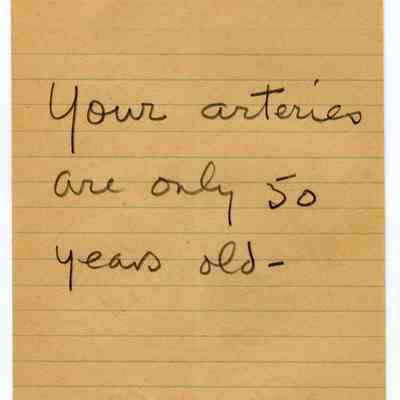 Your arteries
are only 50
years old-